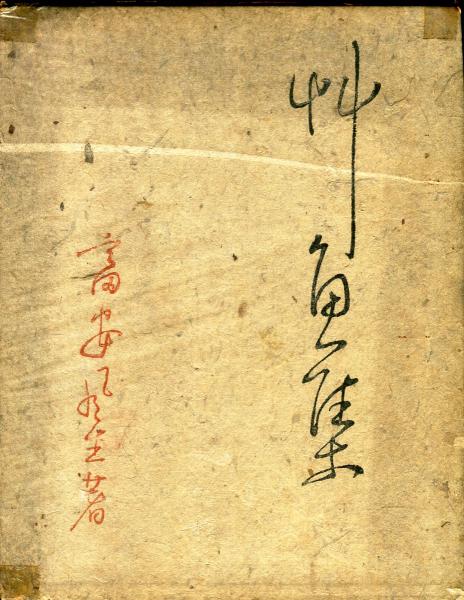 艸魚集
富安風生著